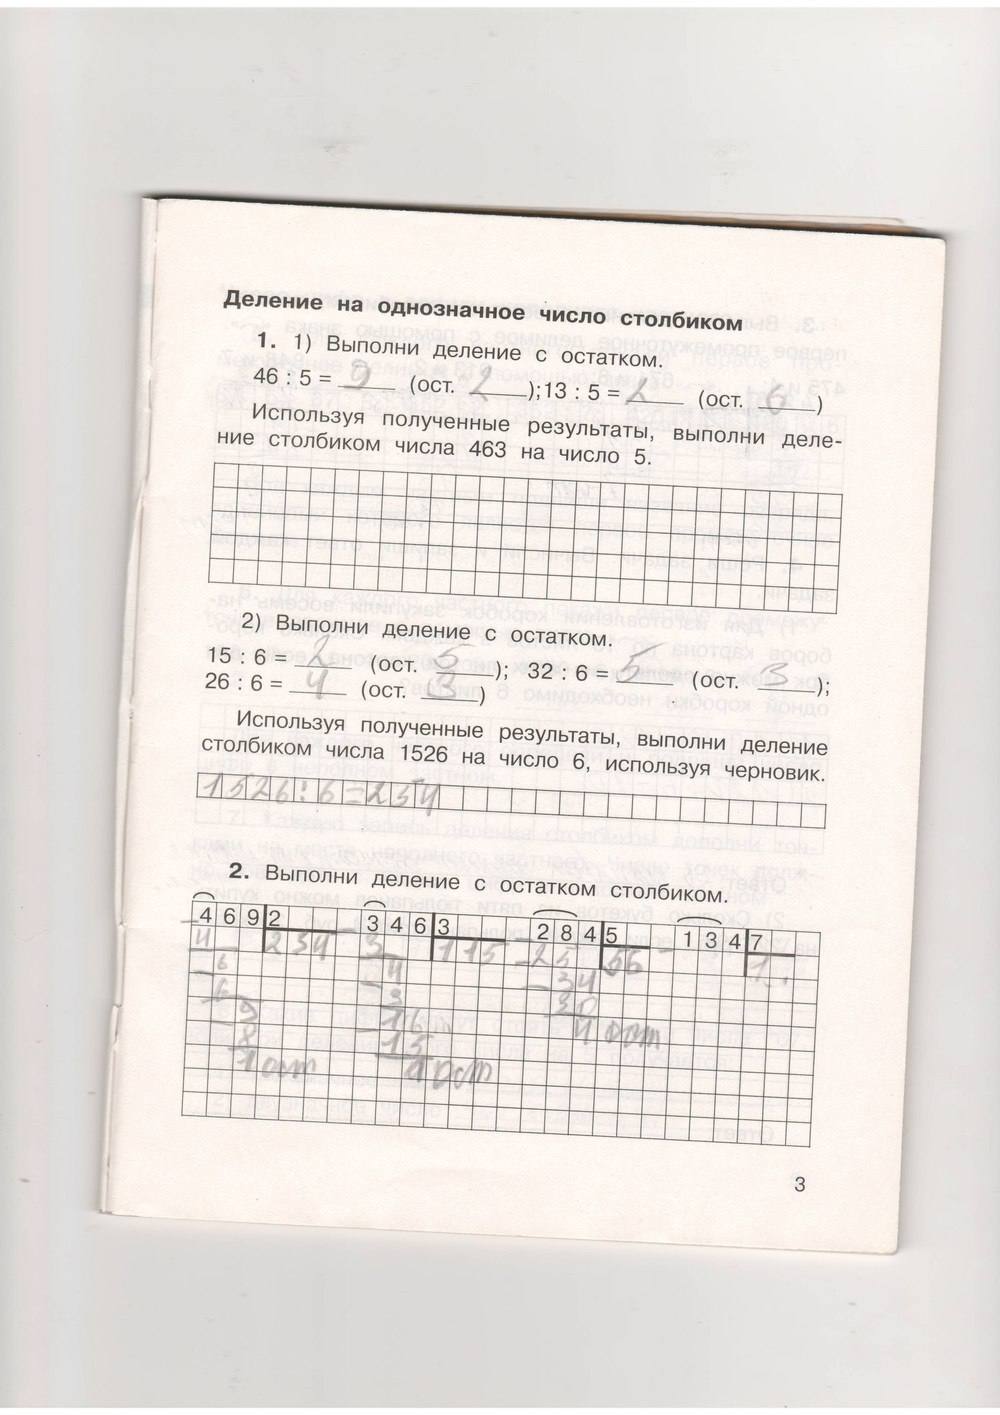 Деление на однозначное число столбиком
1. 1) Выполни деление с остатком.
46 : 5 = 9 (ост. 2 ); 13 : 5 = 2 (ост. 6 )
Используя полученные результаты, выполни деле-
ние столбиком числа 463 на число 5.
2) Выполни деление с остатком.
15 : 6 = 2 (ост. 5 ); 32 : 6 = 5 (ост. 3 );
26 : 6 = 4 (ост. 3 )
Используя полученные результаты, выполни деление
столбиком числа 1526 на число 6, используя черновик.
1526:6=254
2. Выполни деление с остатком столбиком.
469 2 346 3 284 5 134 7
4 234 3 115 25 56 1
6 4 34
6 3 30
9 16 4 ост
8 15
1 ост 1 ост
3